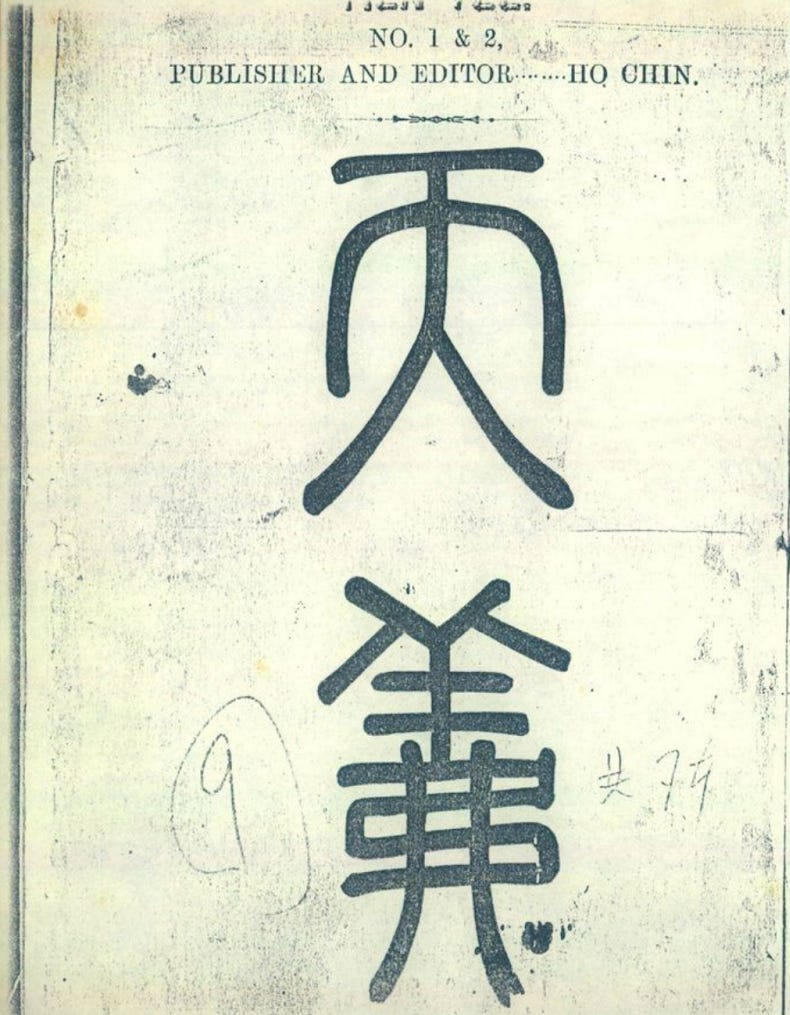 NO. 1 & 2,
PUBLISHER AND EDITOR........HO CHIN.
天
羛
9
共